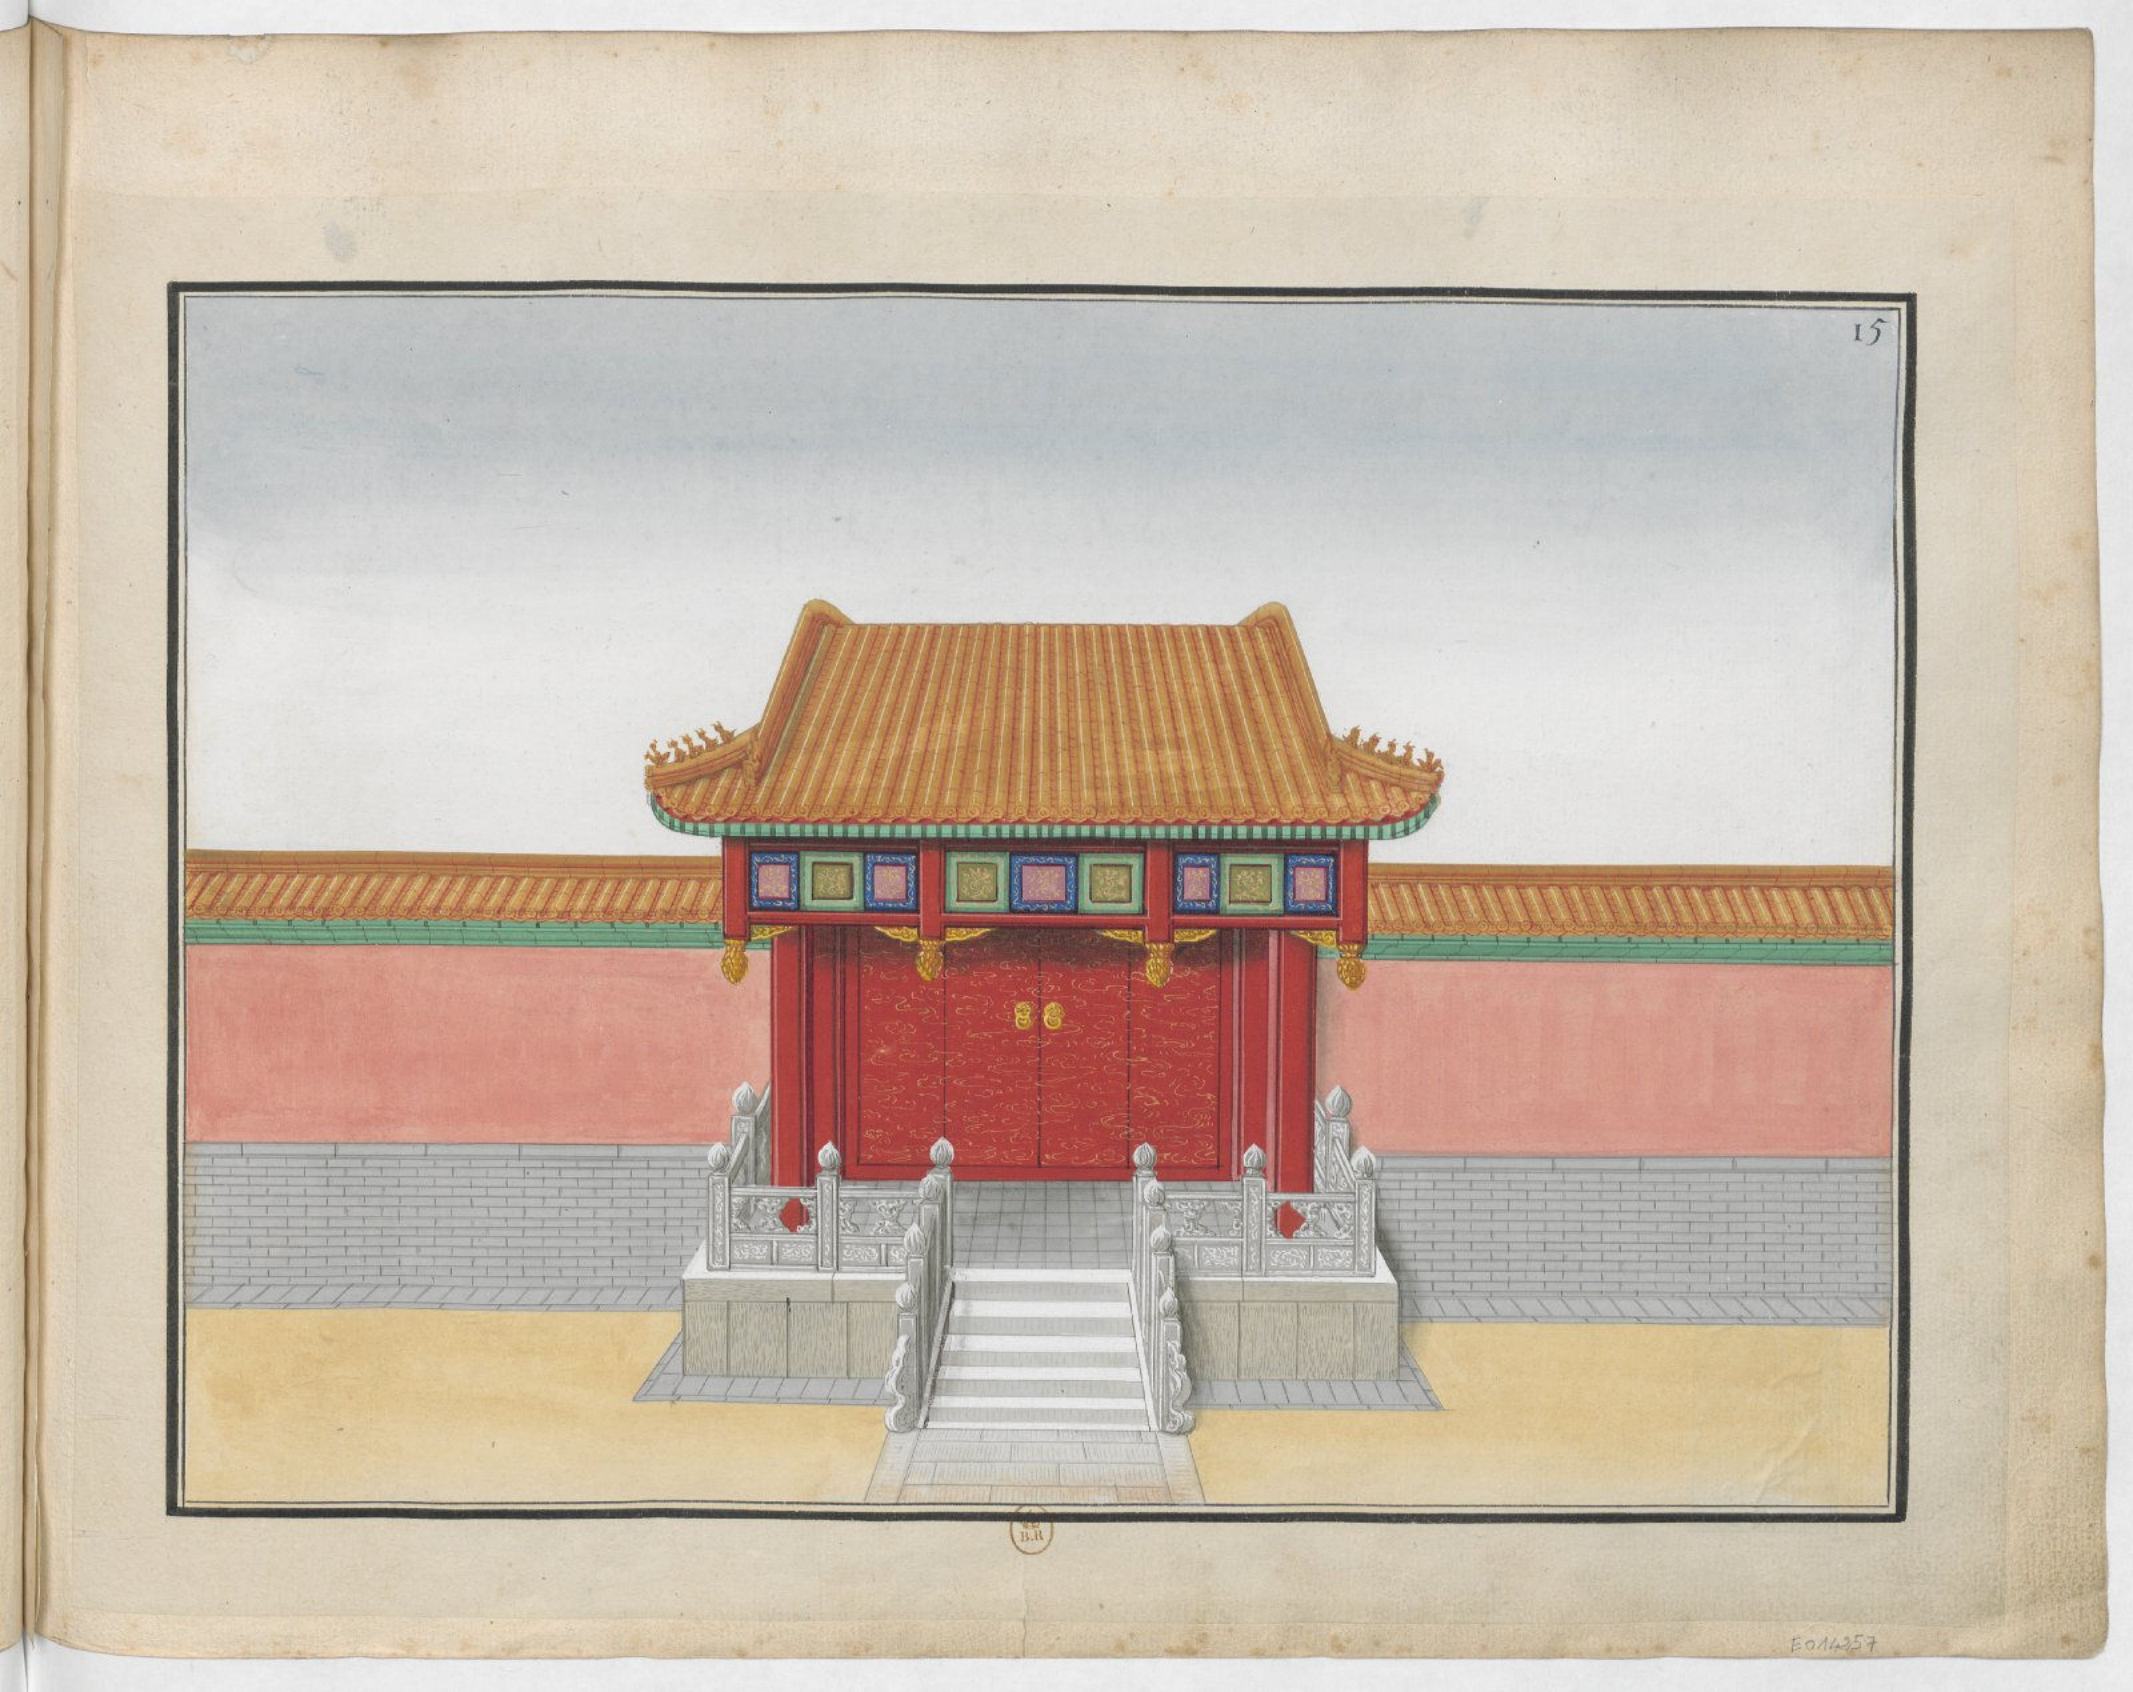 15
B.R
E014257